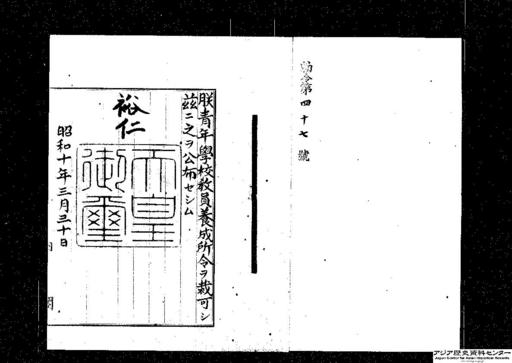 勅令第四十七號
朕青年學校教員養成所令ヲ裁可シ
茲ニ之ヲ公布セシム
裕仁
天皇
御璽
昭和十年三月三十日
内閣
アジア歴史資料センター
Japan Center for Asian Historical Records